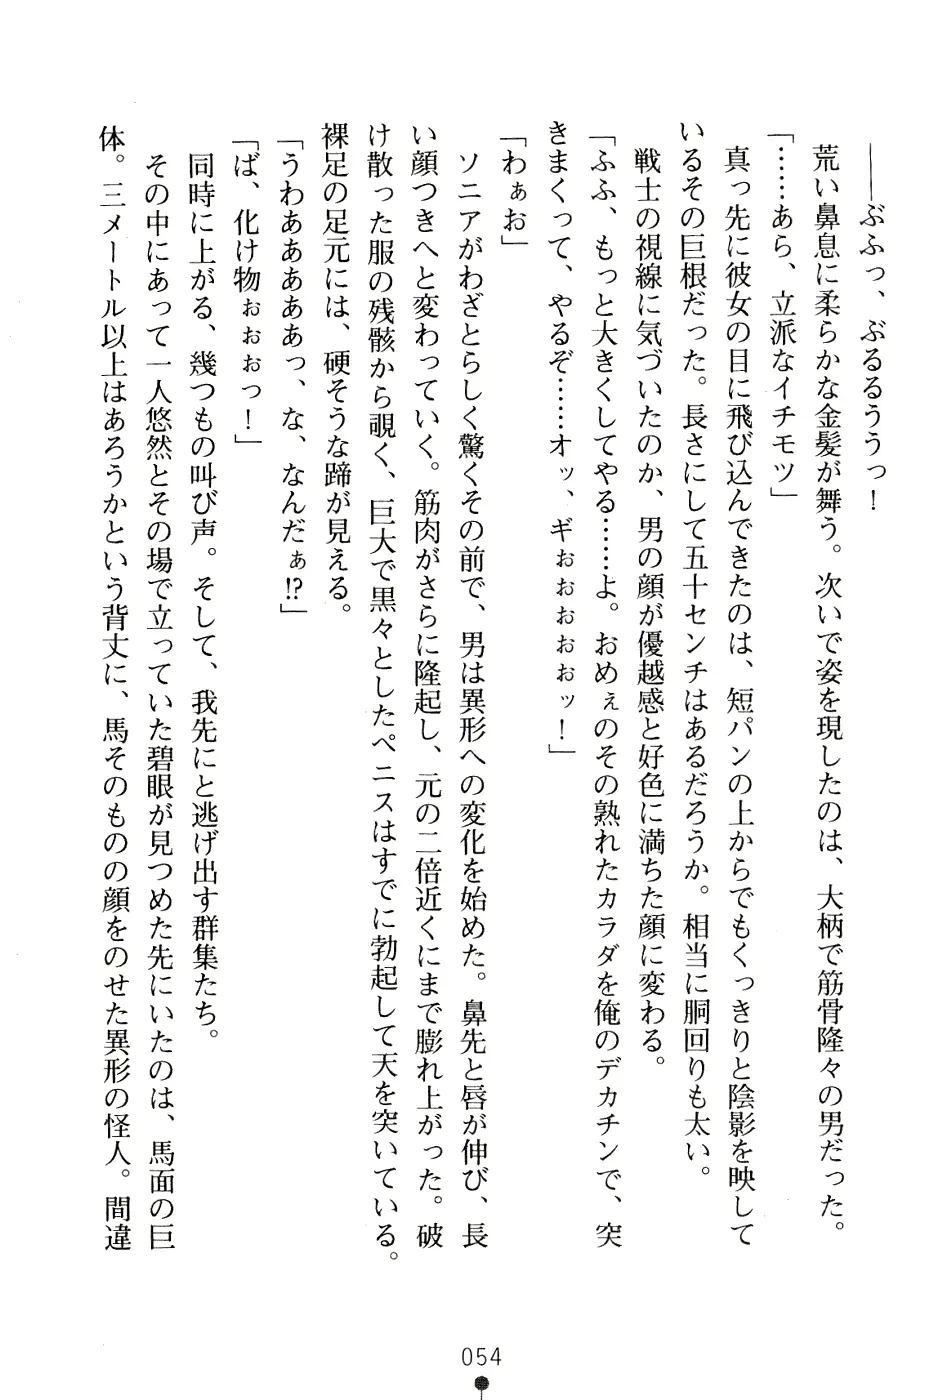 ――ぶふっ、ぶるるううっ！
荒い鼻息に柔らかな金髪が舞う。次いで姿を現したのは、大柄で筋骨隆々の男だった。
「……あら、立派なイチモツ」
真っ先に彼女の目に飛び込んできたのは、短パンの上からでもくっきりと陰影を映して
いるその巨根だった。長さにして五十センチはあるだろうか。相当に胴回りも太い。
戦士の視線に気づいたのか、男の顔が優越感と好色に満ちた顔に変わる。
「ふふ、もっと大きくしてやる……よ。おめぇのその熟れたカラダを俺のデカチンで、突
きまくって、やるぞ……オッ、ギぉぉぉぉぉッ！」
「わぁお」
ソニアがわざとらしく驚くその前で、男は異形への変化を始めた。鼻先と唇が伸び、長
い顔つきへと変わっていく。筋肉がさらに隆起し、元の二倍近くにまで膨れ上がった。破
け散った服の残骸から覗く、巨大で黒々としたペニスはすでに勃起して天を突いている。
裸足の足元には、硬そうな蹄が見える。
「うわああああああっ、な、なんだぁ!?」
「ば、化け物ぉぉぉっ！」
同時に上がる、幾つもの叫び声。そして、我先にと逃げ出す群集たち。
その中にあって一人悠然とその場で立っていた碧眼が見つめた先にいたのは、馬面の巨
体。三メートル以上はあろうかという背丈に、馬そのものの顔をのせた異形の怪人。間違
054